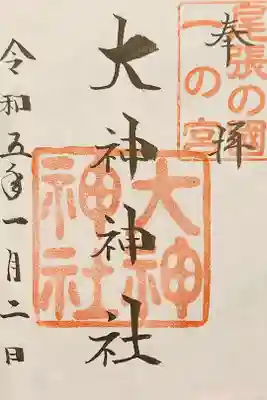 奉拝
尾張の國
一の宮
大神神社
大神
神社
令和五年一月二日